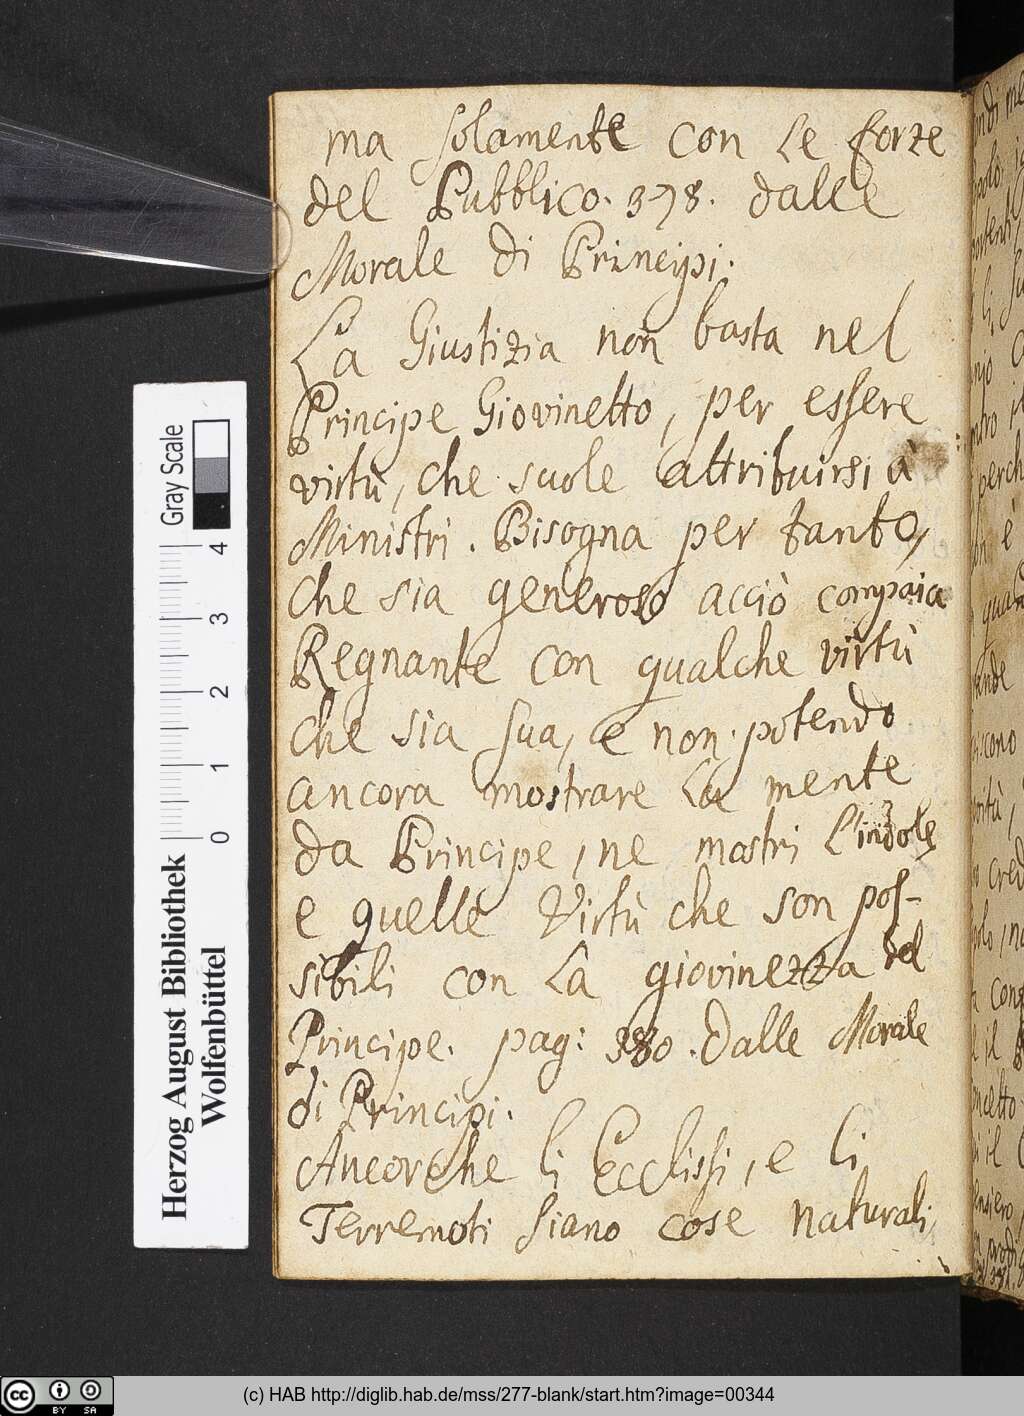 ma solamente con le forze
del Pubblico. 378. dalle
Morale di Principi.
La Giustizia non basta nel
Principe Giovinetto, per essere
virtù, che suole attribuirsi à
Ministri. Bisogna per tanto,
che sia generoso acciò compaia
Regnante con qualche virtù
che sia sua, e non potendo
ancora mostrare la mente
da Principe, ne mostri l'indole,
e quelle Virtù che son pos-
sibili con la giovinezza del
Principe. pag: 380. dalle Morale
di Principi.
Ancorche li Ecclissi, e li
Terremoti siano cose naturali,
Gray Scale
0 1 2 3 4
Herzog August Bibliothek
Wolfenbüttel
cc BY SA
(c) HAB http://diglib.hab.de/mss/277-blank/start.htm?image=00344